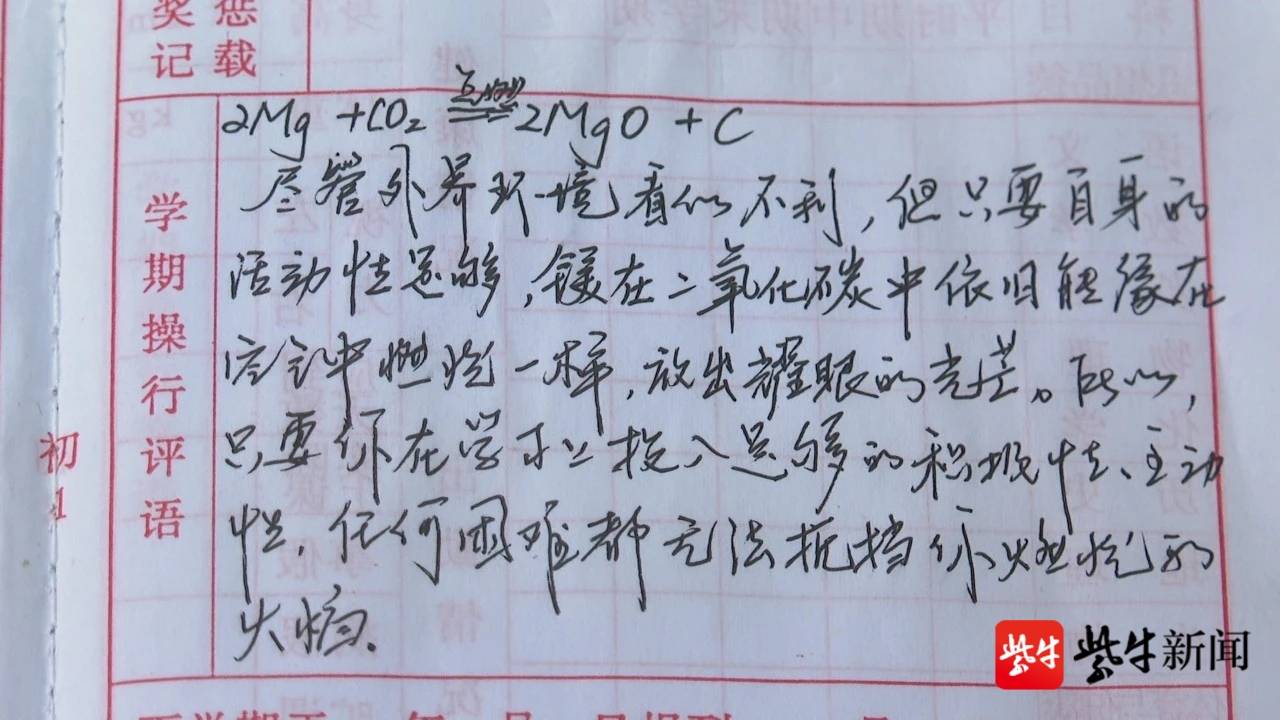 奖惩
记载
学期操行评语
初
1
点燃
2Mg + CO₂ == 2MgO + C
尽管外界环境看似不利，但只要自身的
活动性足够，镁在二氧化碳中依旧能像在
空气中燃烧一样，放出耀眼的光芒。所以，
只要你在学习上投入足够的积极性、主动
性，任何困难都无法抵挡你燃烧的
火焰.
紫牛 紫牛新闻